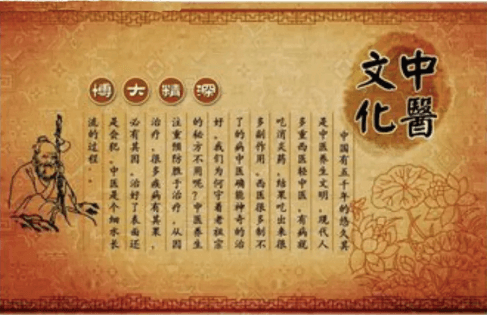 中醫
文化
博大精深
中国有五千年的悠久其
是中医养生文明，现代人
多重西医轻中医，有病就
吃消炎药，结果吃出来很
多副作用。西医很多制不
了的病中医确能神奇的治
好。我们为何守着老祖宗
的秘方不用呢？中医养生
注重预防胜于治疗，从因
治疗，很多疾病有其果，
必有其因。治好了表面还
是会犯。中医是个细水长
流的过程..